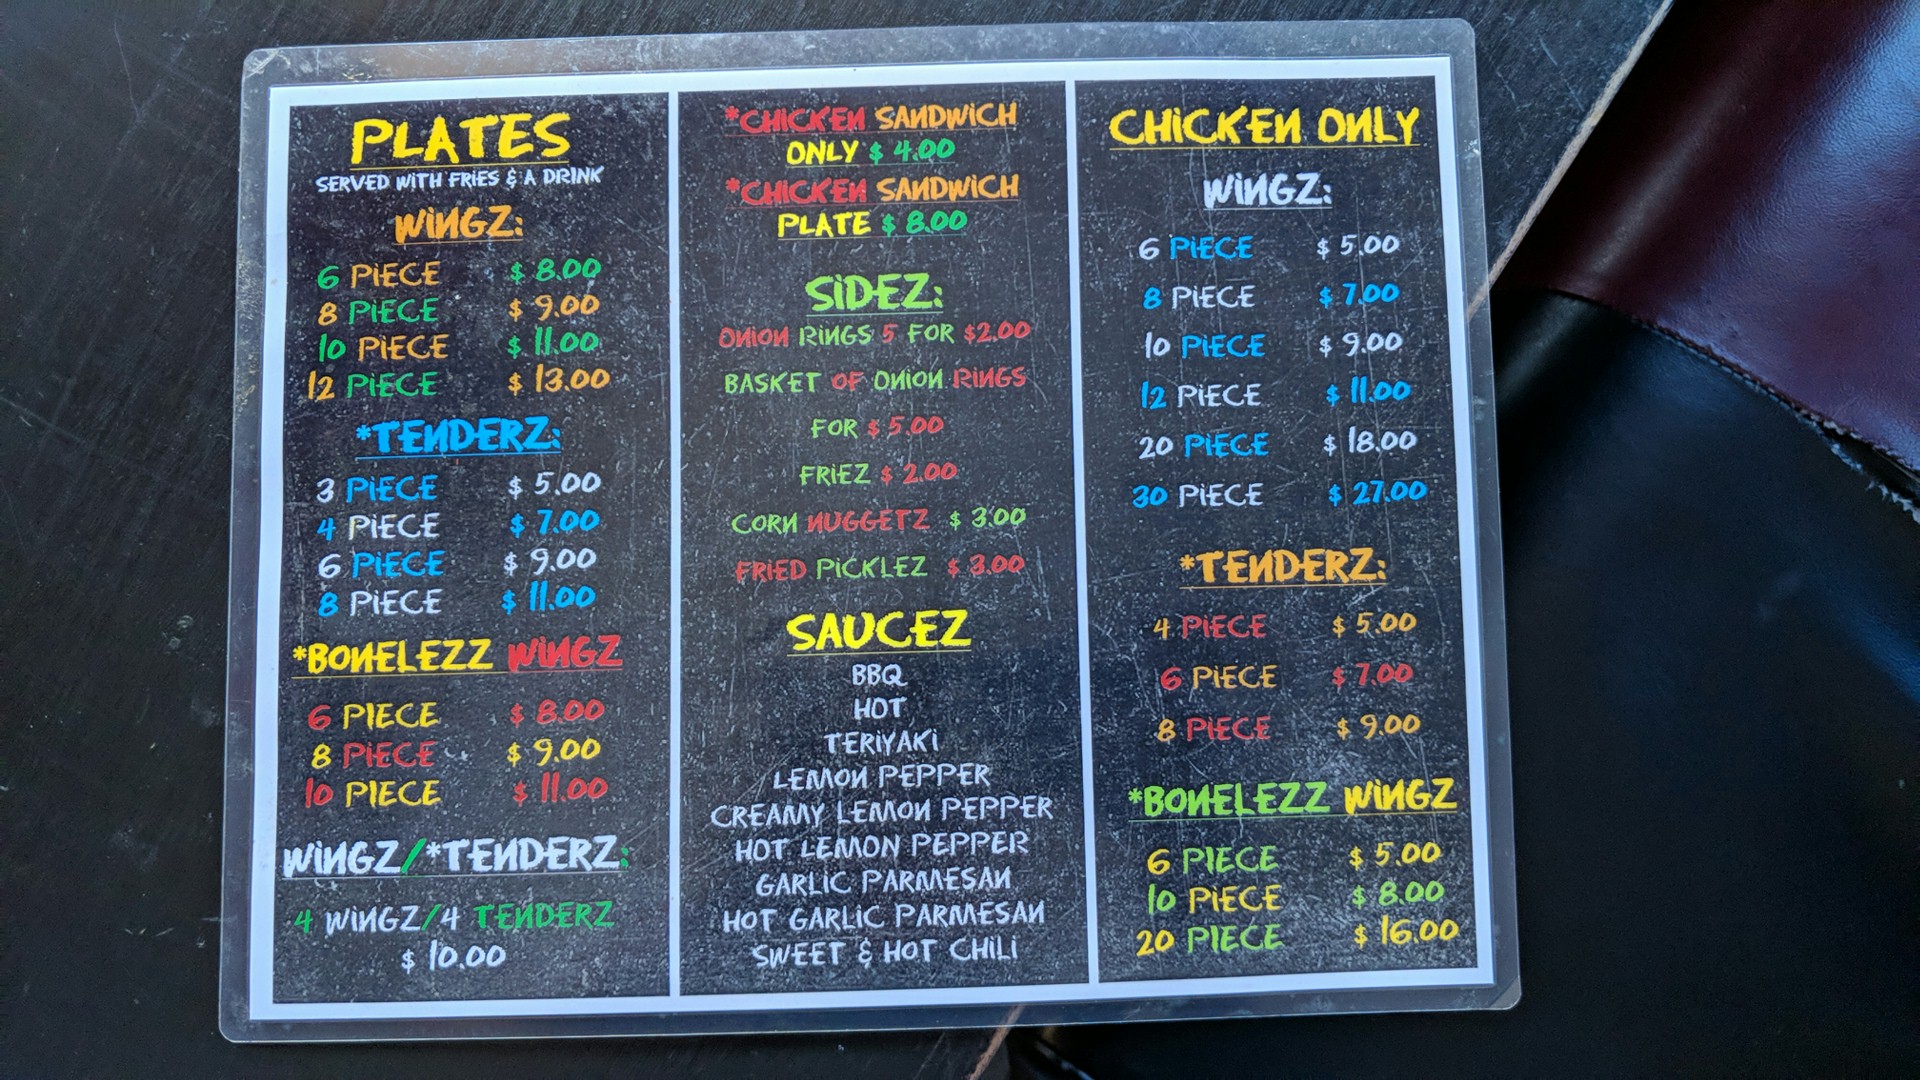 PLATES
SERVED WITH FRIES & A DRINK
WINGZ:
6 PIECE $ 8.00
8 PIECE $ 9.00
10 PIECE $ 11.00
12 PIECE $ 13.00
*TENDERZ:
3 PIECE $ 5.00
4 PIECE $ 7.00
6 PIECE $ 9.00
8 PIECE $ 11.00
*BONELEZZ WINGZ
6 PIECE $ 8.00
8 PIECE $ 9.00
10 PIECE $ 11.00
WINGZ/*TENDERZ:
4 WINGZ/4 TENDERZ
$ 10.00
*CHICKEN SANDWICH
ONLY $ 4.00
*CHICKEN SANDWICH
PLATE $ 8.00
SIDEZ:
ONION RINGS 5 FOR $2.00
BASKET OF ONION RINGS
FOR $ 5.00
FRIEZ $ 2.00
CORN NUGGETZ $ 3.00
FRIED PICKLEZ $ 3.00
SAUCEZ
BBQ
HOT
TERIYAKI
LEMON PEPPER
CREAMY LEMON PEPPER
HOT LEMON PEPPER
GARLIC PARMESAN
HOT GARLIC PARMESAN
SWEET & HOT CHILI
CHICKEN ONLY
WINGZ:
6 PIECE $ 5.00
8 PIECE $ 7.00
10 PIECE $ 9.00
12 PIECE $ 11.00
20 PIECE $ 18.00
30 PIECE $ 27.00
*TENDERZ:
4 PIECE $ 5.00
6 PIECE $ 7.00
8 PIECE $ 9.00
*BONELEZZ WINGZ
6 PIECE $ 5.00
10 PIECE $ 8.00
20 PIECE $ 16.00